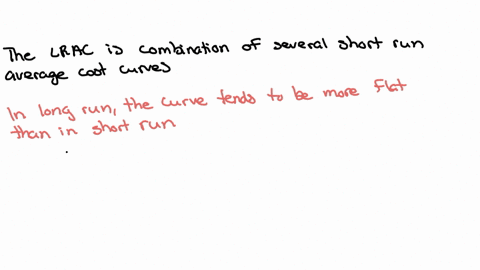 The LRAC is combination of several short run
average cost curves
In long run, the curve tends to be more flat
than in short run